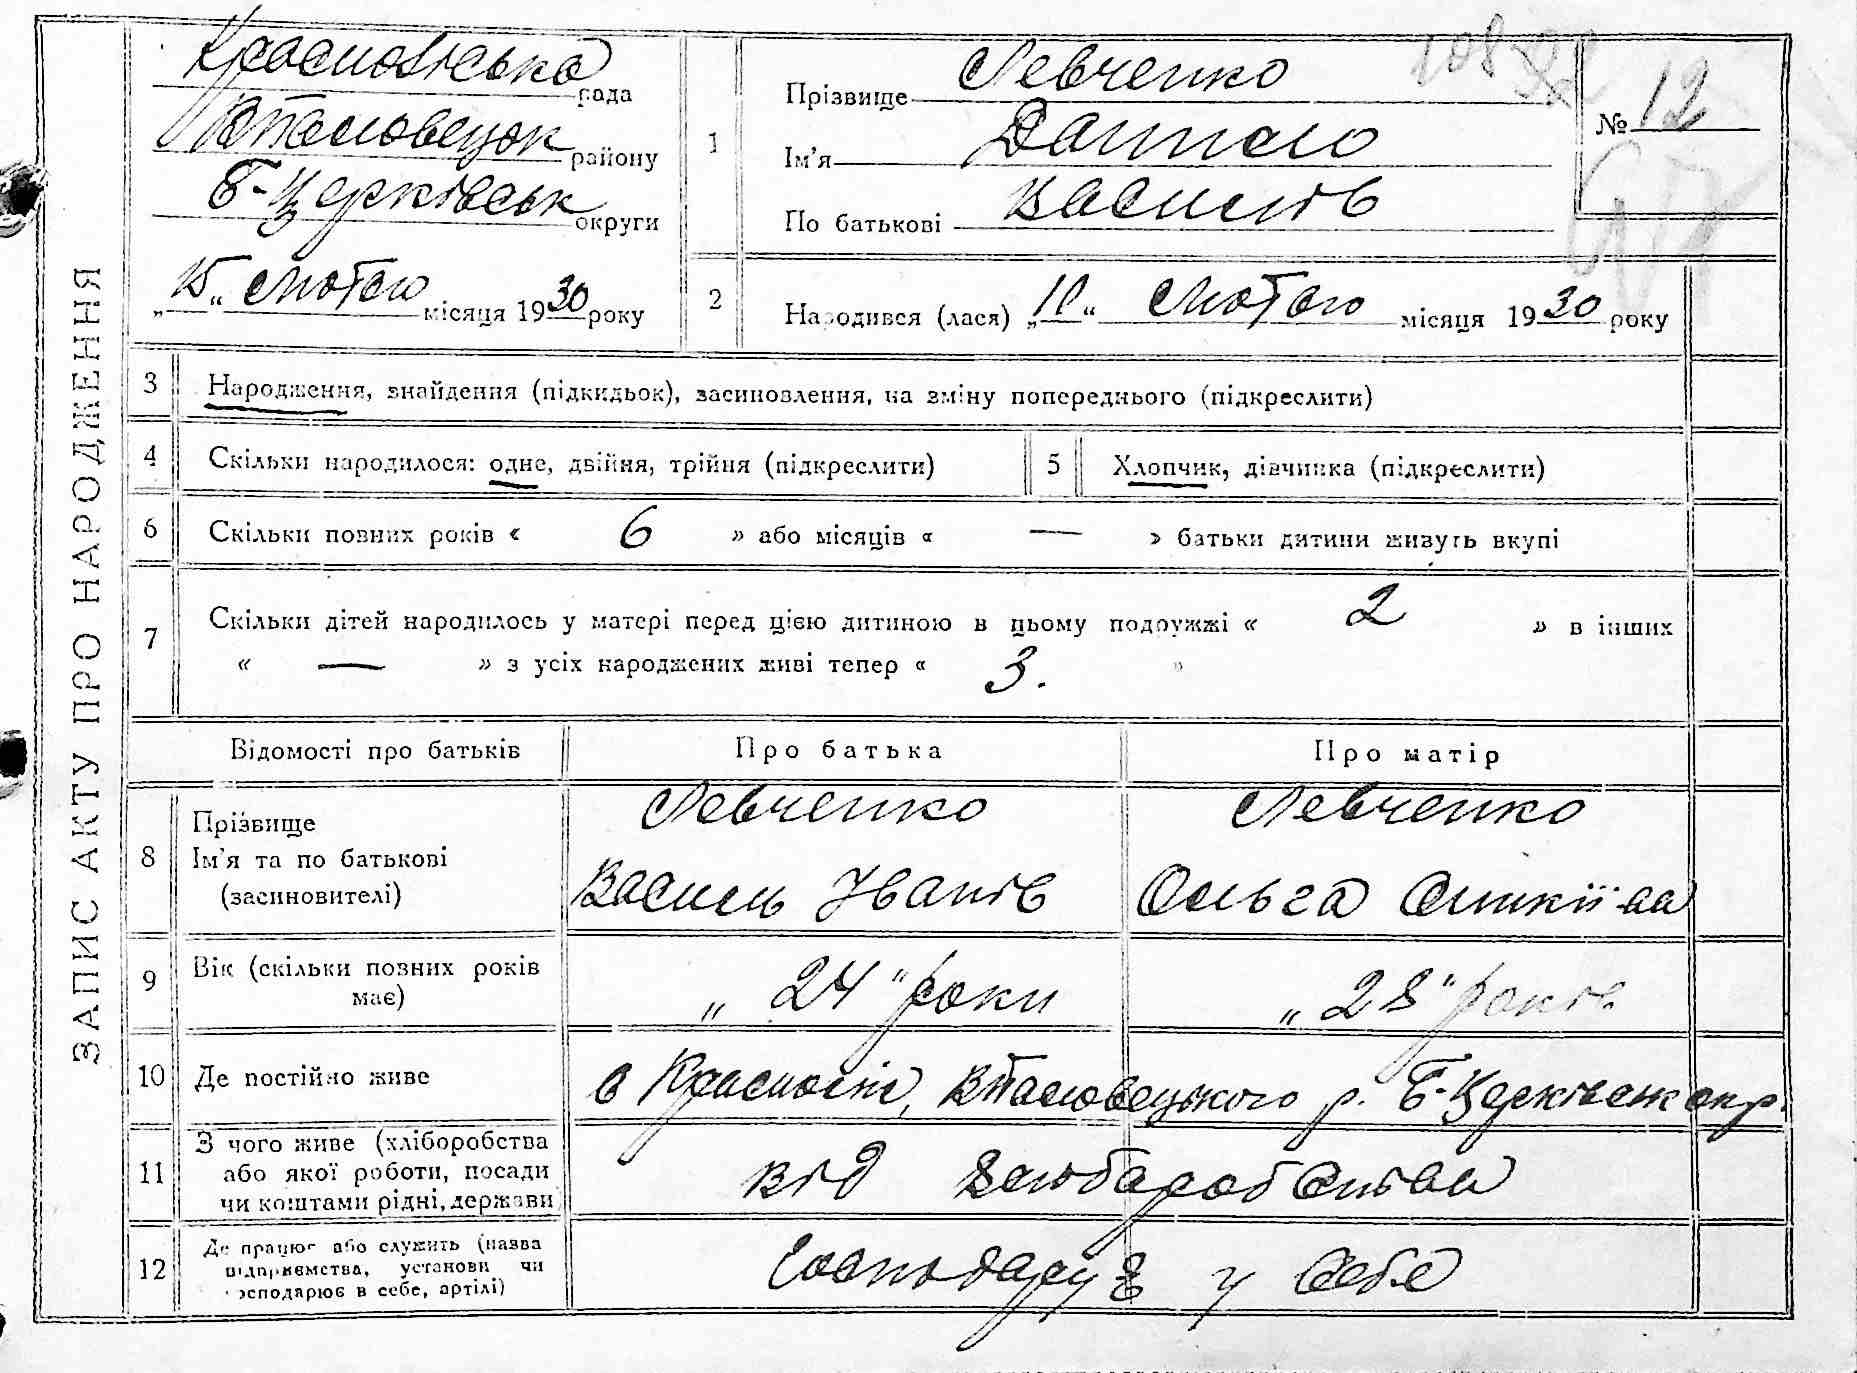 ЗАПИС АКТУ ПРО НАРОДЖЕННЯ
Красносільська рада
району
Б-Церківськ округи
„15“ лютого місяця 1930 року
1
Прізвище Левченко
Ім'я Данило
По батькові Василів
108
№ 12
2
Народився (лася) „11“ лютого місяця 1930 року
3 Народження, знайдення (підкидьок), засиновлення, на зміну попереднього (підкреслити)
4 Скільки народилося: одне, двійня, трійня (підкреслити)
5 Хлопчик, дівчинка (підкреслити)
6 Скільки повних років « 6 » або місяців « — » батьки дитини живуть вкупі
7 Скільки дітей народилось у матері перед цією дитиною в цьому подружжі « 2 » в інших
« — » з усіх народжених живі тепер « 3. »
Відомості про батьків Про батька Про матір
8 Прізвище Левченко Левченко
Ім'я та по батькові Василь Іванів Ольга
(засиновителі)
9 Вік (скільки повних років має) „24“ роки „28“ років
10 Де постійно живе в р. Б-Церківськ окр.
11 З чого живе (хліборобства
або якої роботи, посади
чи коштами рідні, держави
від
12 Де працює або служить (назва
підприємства, установи чи
господарює в себе, артілі)
Господарує у себе